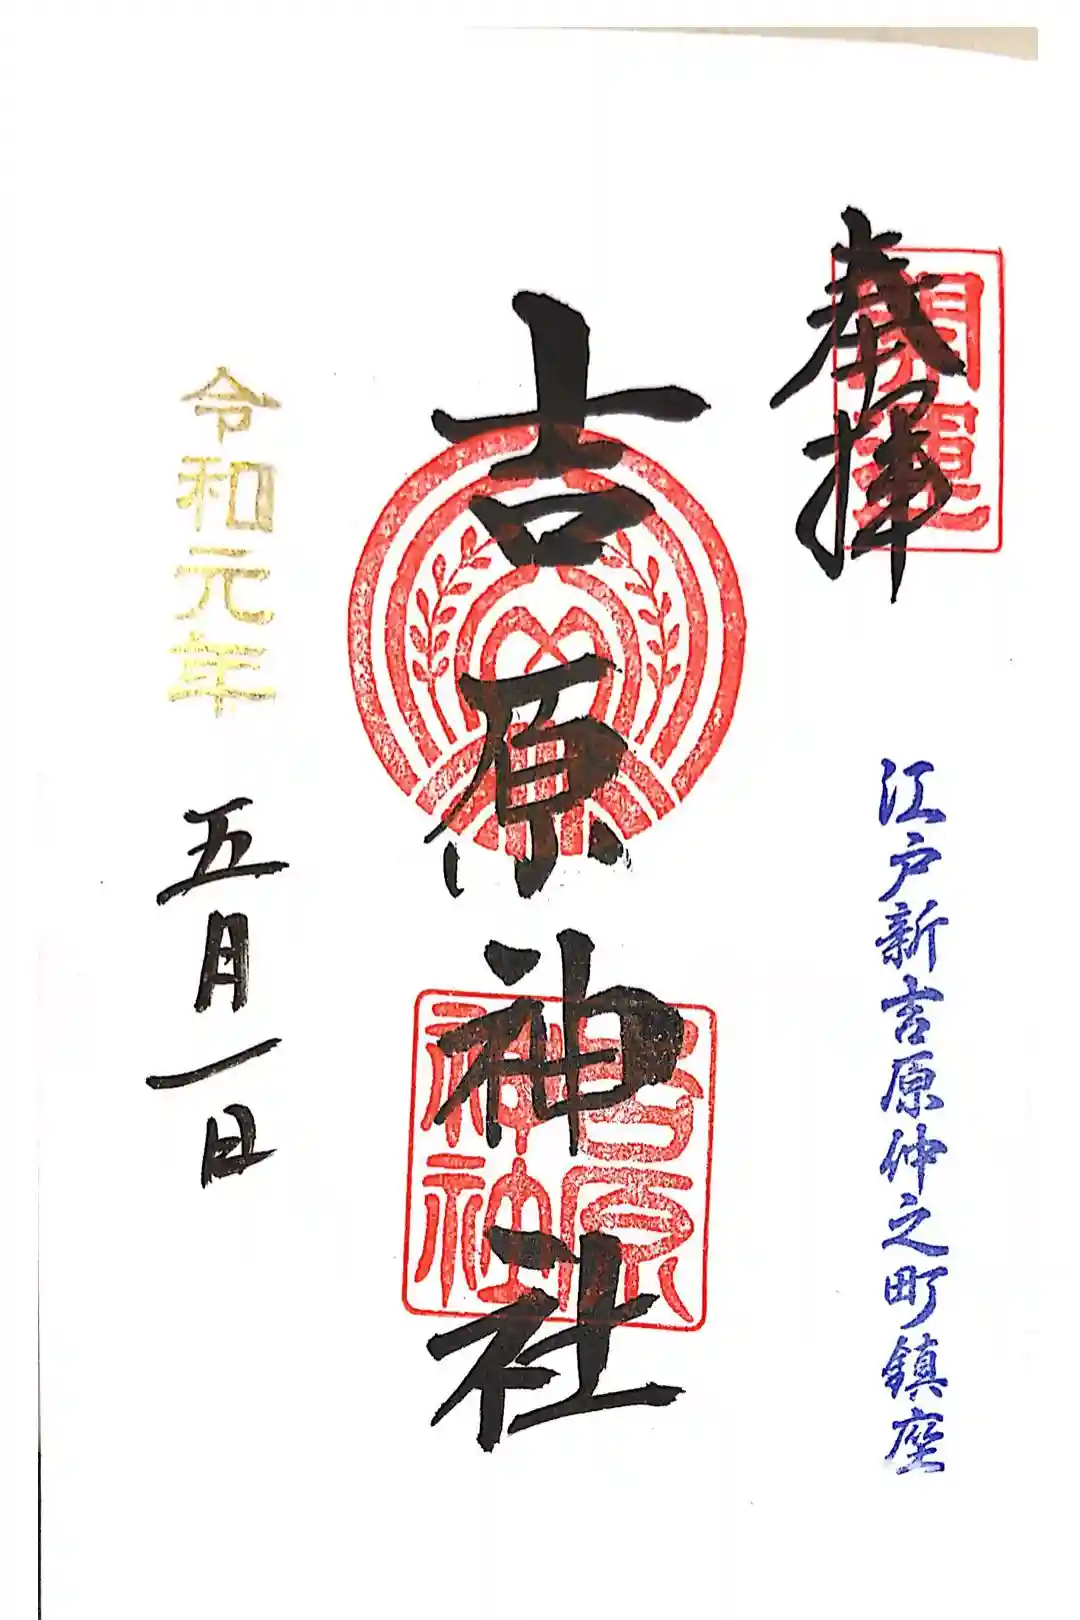 奉拝
開運
江戸新吉原仲之町鎮座
吉原神社
吉原
神社
令和元年
五月一日